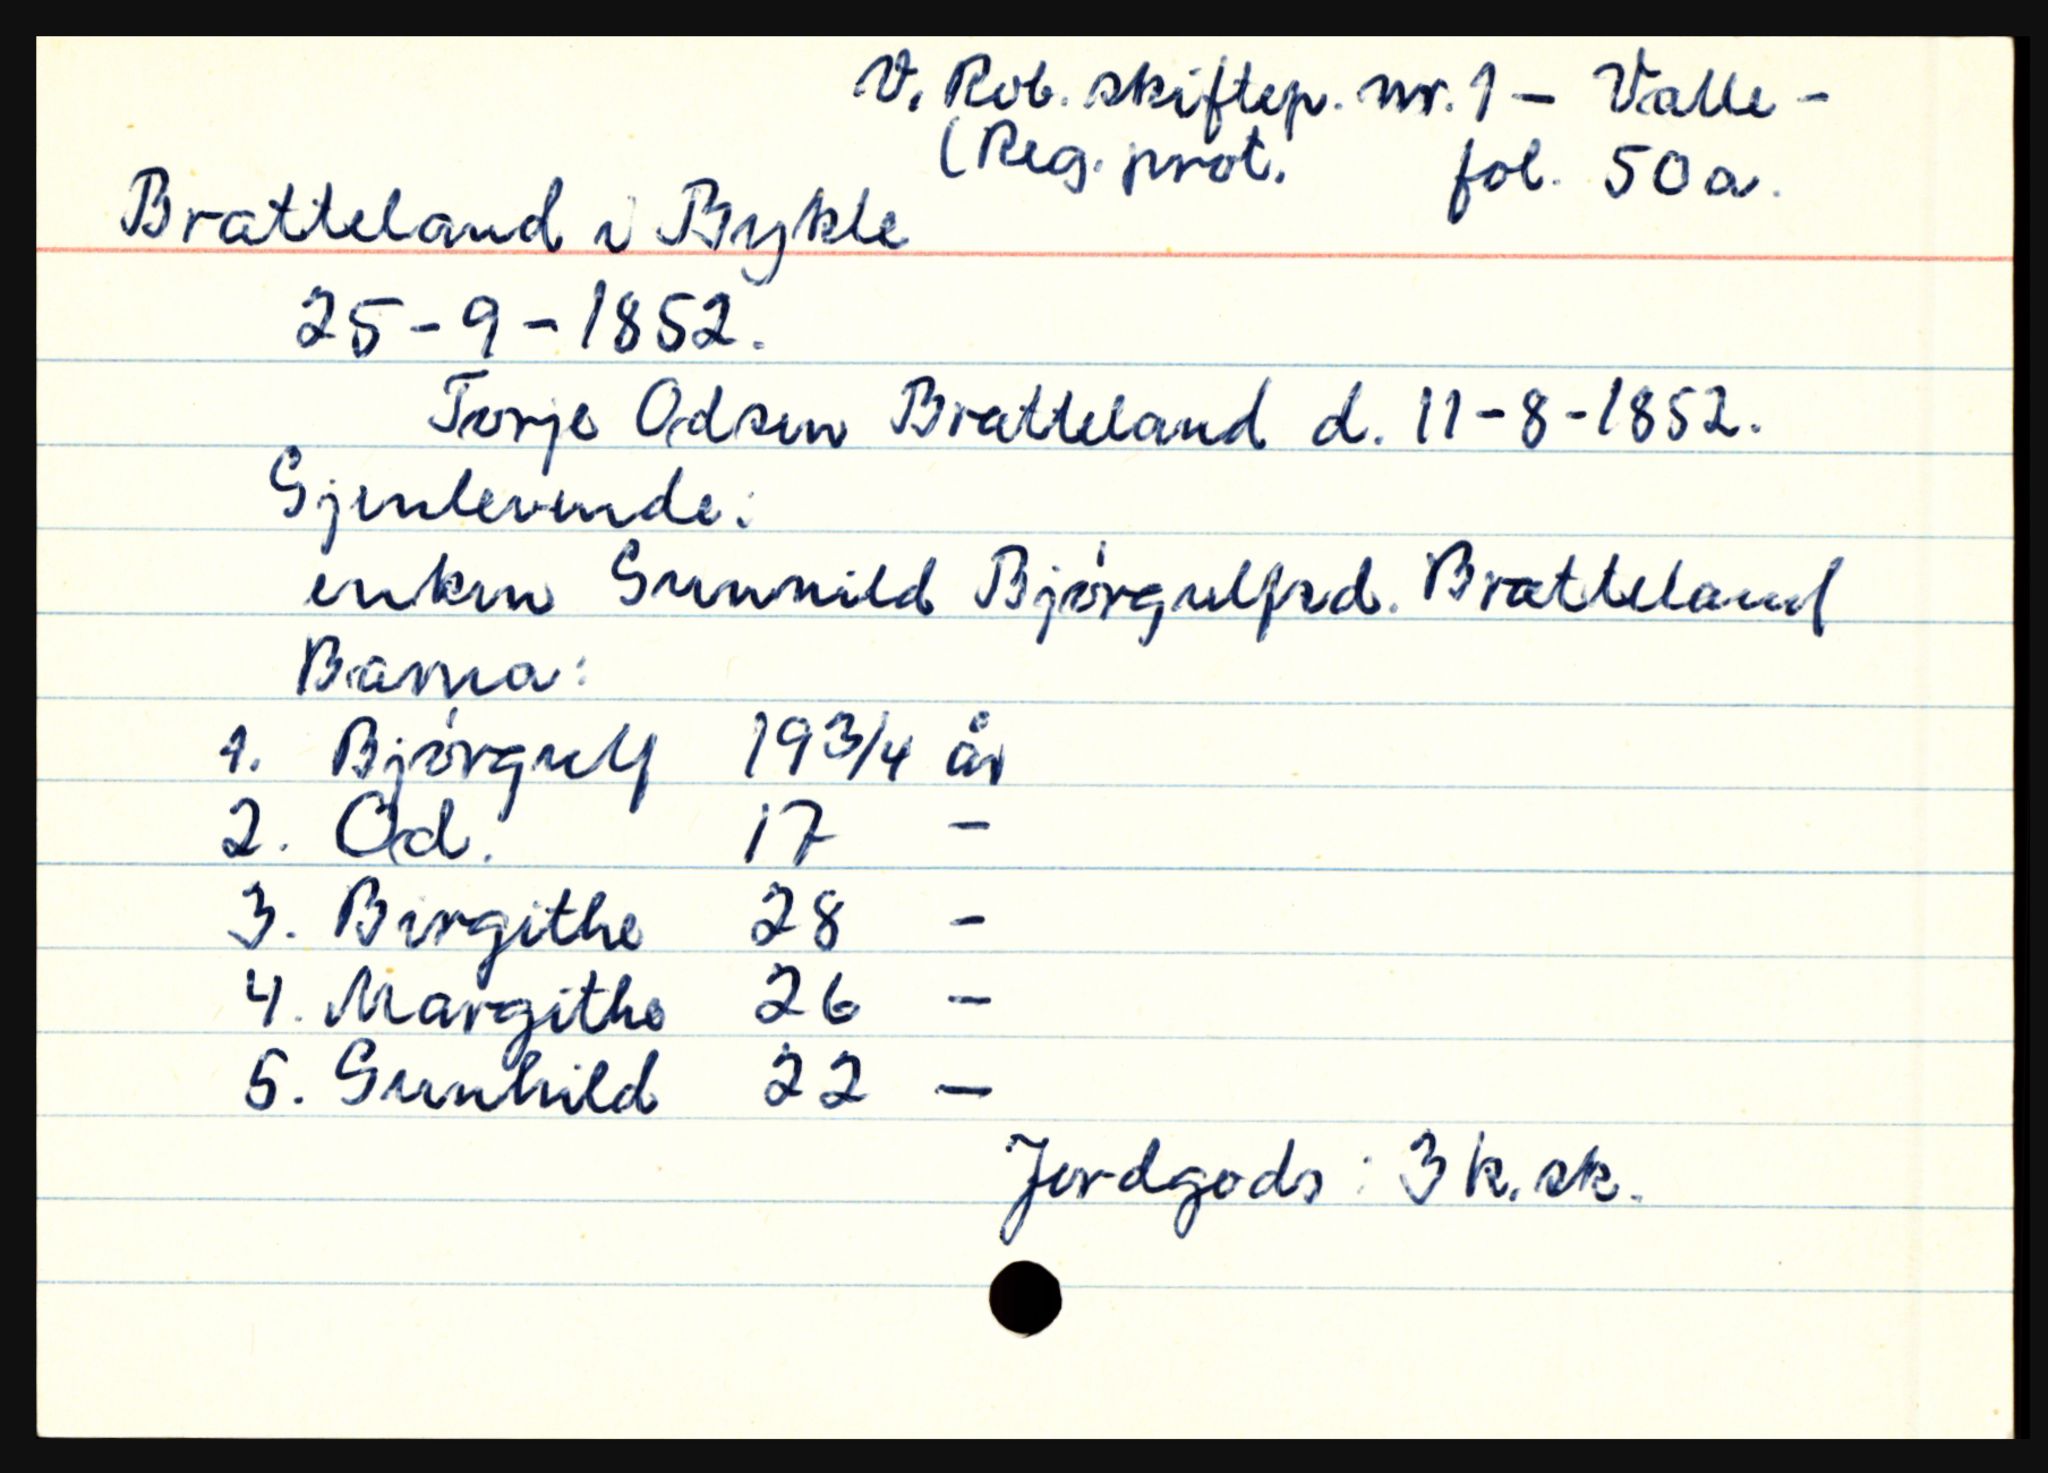 V. Rob. skiftep. nr. 1 – Valle –
(Reg. prot. fol. 50a.
Bratteland i Bykle
25-9-1852.
Torje Odsen Bratteland d. 11-8-1852.
Gjenlevende:
enken Gunnild Bjørgulfsd. Bratteland
Barna:
1. Bjørgulf 19 3/4 år
2. Od. 17 –
3. Birgithe 28 –
4. Margithe 26 –
5. Gunhild 22 –
Jordgods: 3 k. sk.